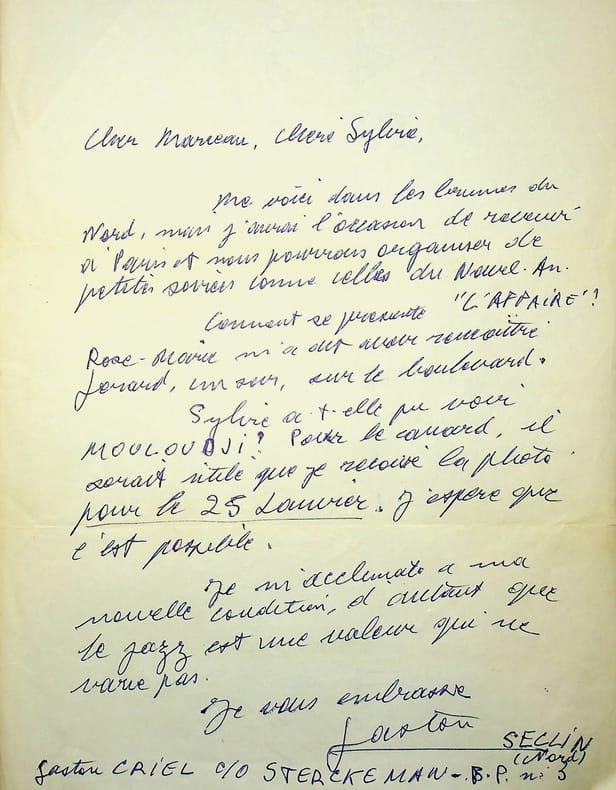 Cher Marceau, Chère Sylvie,
Me voici dans les brumes du
Nord, mais j'aurai l'occasion de revenir
à Paris et nous pourrons organiser de
petites soirées comme celles du Nouvel-An.
Comment se présente "L'AFFAIRE"?
Rose-Marie m'a dit avoir rencontré
Jorard, un soir, sur le boulevard.
Sylvie a-t-elle pu voir
MOULOUDJI? Pour le canard, il
serait utile que je reçoive la photo
pour le 25 Janvier. J'espère que
c'est possible.
Je m'acclimate à ma
nouvelle condition, d'autant que
le jazz est une valeur qui ne
varie pas.
Je vous embrasse
Gaston
SECLIN
(Nord)
Gaston CRIEL c/o STERCKEMAN - B.P. n: 3